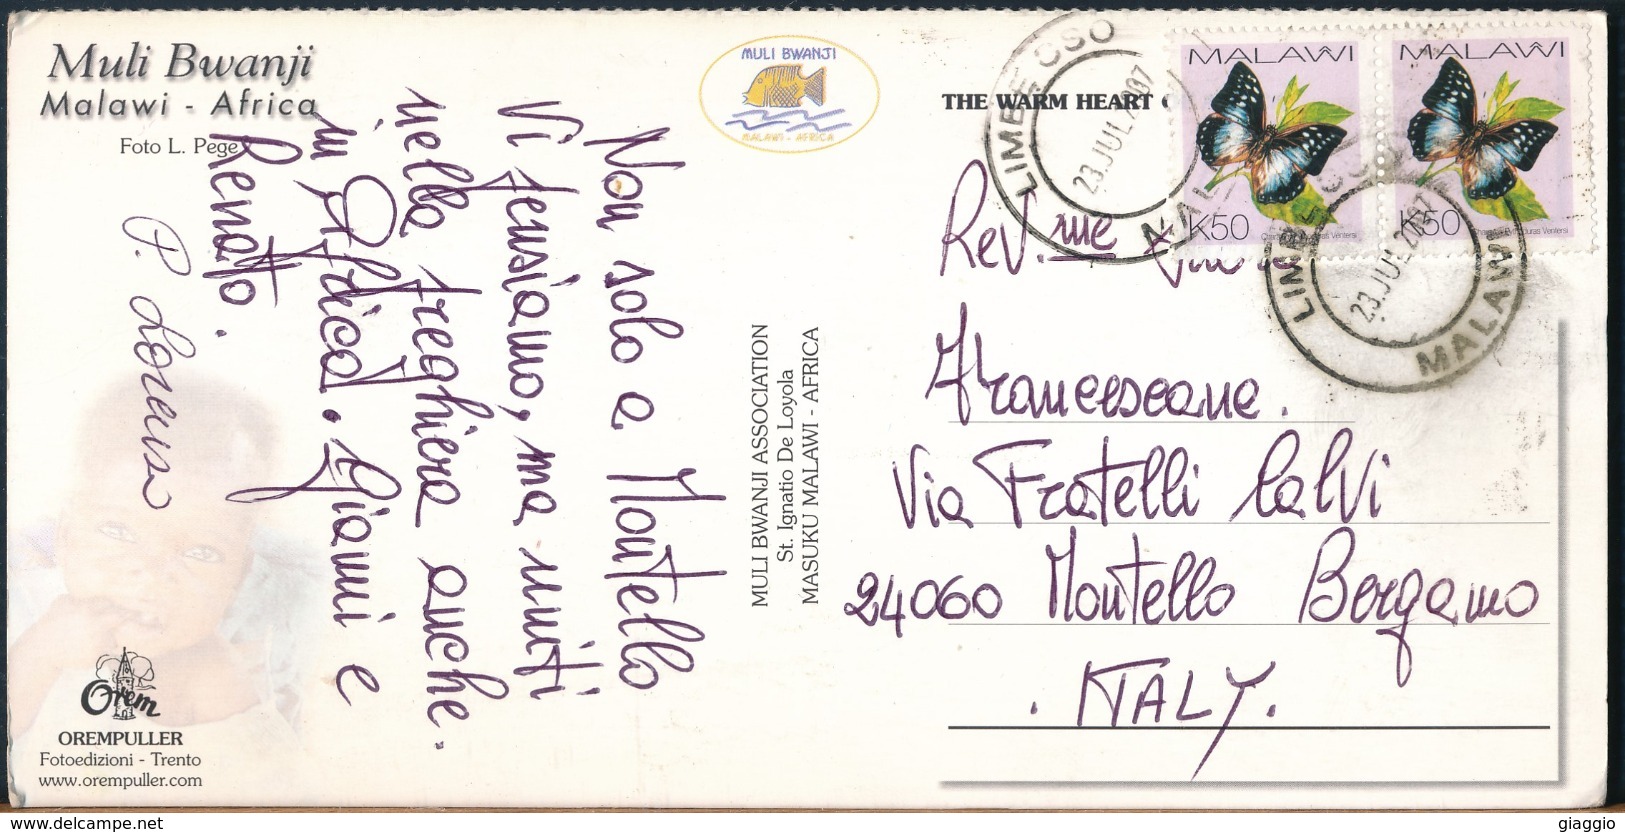 Muli Bwanji
Malawi - Africa
Foto L. Pege
Non solo a Montello
Vi pensiamo, ma uniti
nella preghiera anche
in Africa. Gianni e
Renato.
P. Lorenso
Orem
OREMPULLER
Fotoedizioni - Trento
www.orempuller.com
MULI BWANJI
MALAWI - AFRICA
MULI BWANJI ASSOCIATION
St. Ignatio De Loyola
MASUKU MALAWI - AFRICA
THE WARM HEART
LIMBE CSO
23.JUL.2007
MALAWI
MALAWI
K50
MALAWI
K50
LIMBE CSO
23.JUL.2007
MALAWI
Rev.me
Francescane.
Via Fratelli Calvi
24060 Montello Bergamo
. ITALY.
www.delcampe.net
giaggio